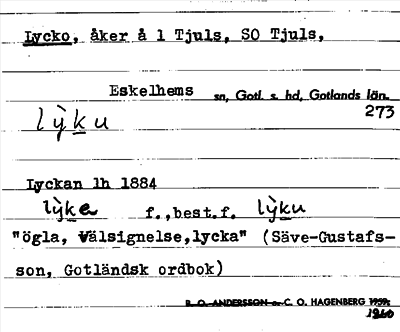 Lycko, åker å 1 Tjuls, SO Tjuls,
Eskelhems sn, Gotl. s. hd, Gotlands län.
lỳku 273
Lyckan lh 1884
lỳke f.,best.f. lỳku
"ögla, Välsignelse,lycka" (Säve-Gustafs-
son, Gotländsk ordbok)
R. O. ANDERSSON o. C. O. HAGENBERG 1959.
1960